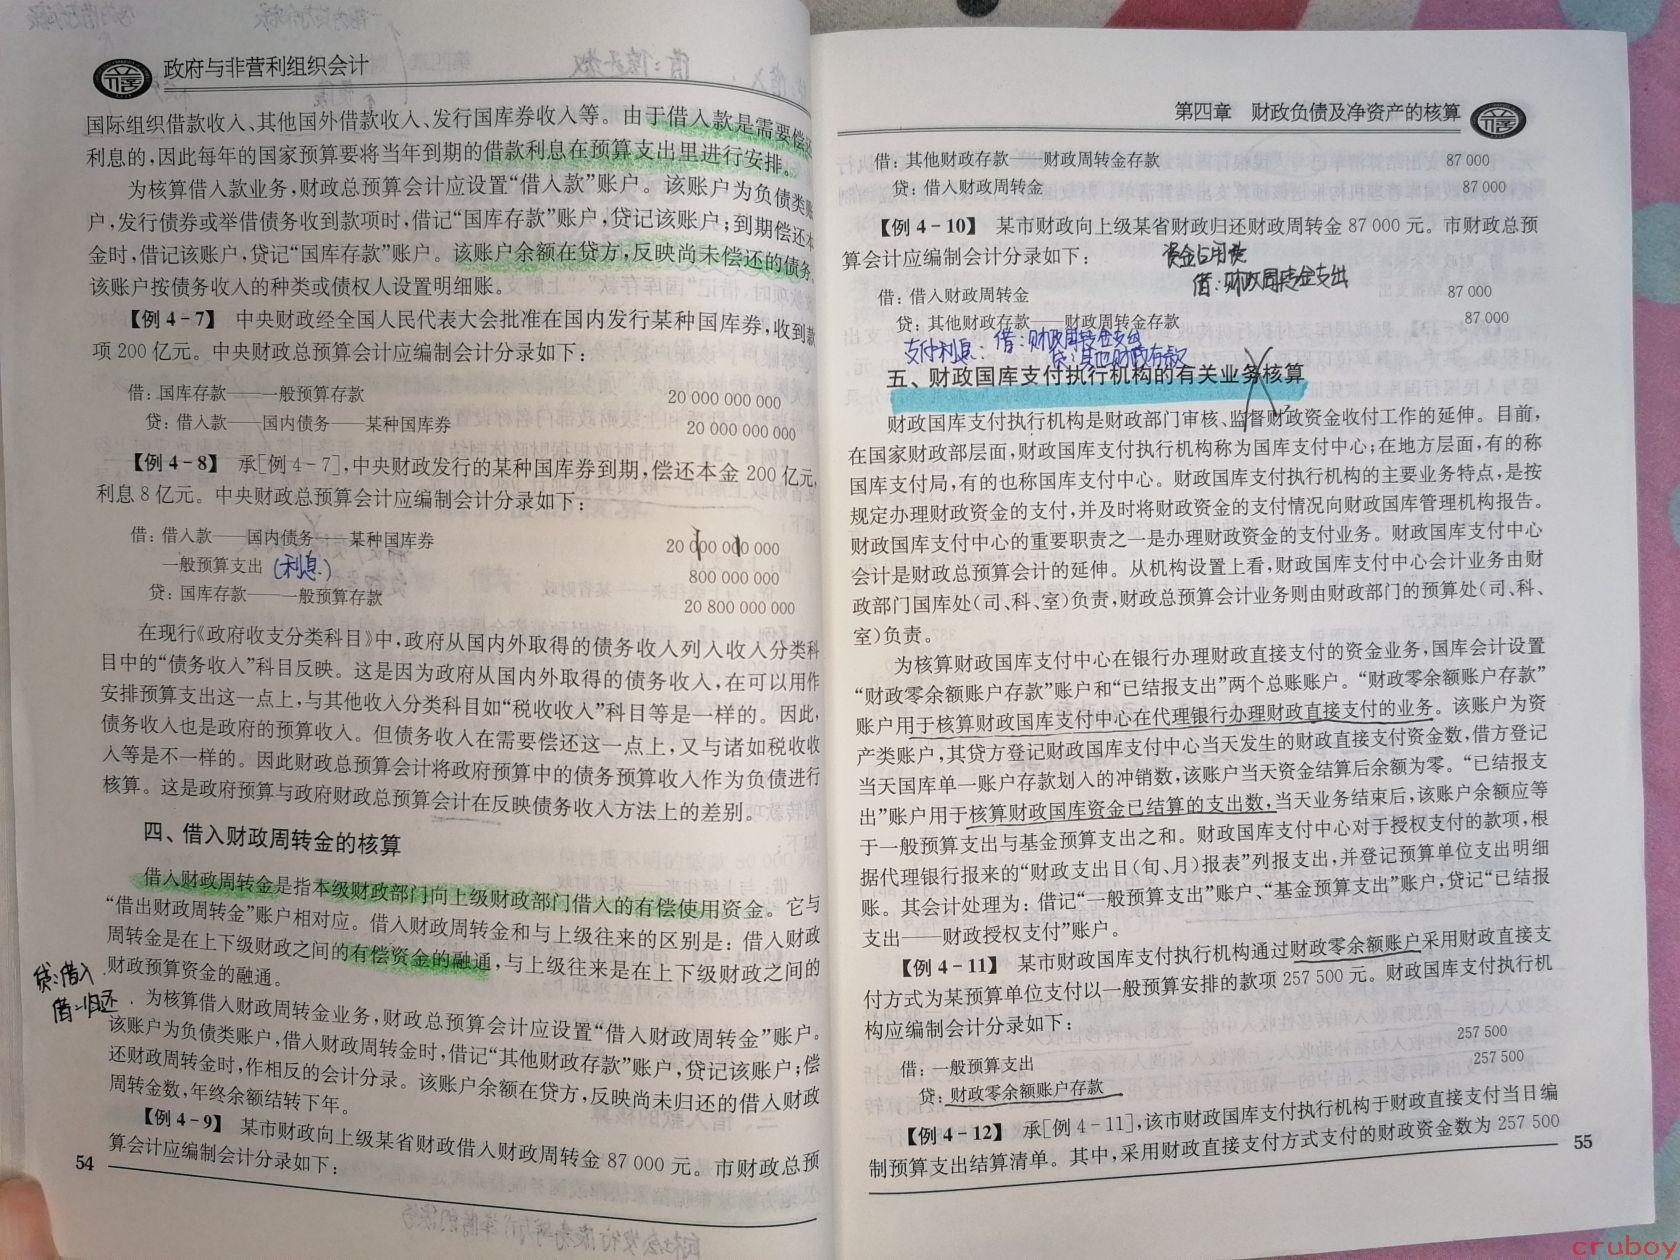 政府与非营利组织会计
国际组织借款收入、其他国外借款收入、发行国库券收入等。由于借入款是需要偿
利息的,因此每年的国家预算要将当年到期的借款利息在预算支出里进行安排。
为核算借入款业务,财政总预算会计应设置“借入款”账户。该账户为负债类账
户,发行债券或举借债务收到款项时,借记“国库存款”账户,贷记该账户;到期偿还本
金时,借记该账户,贷记“国库存款”账户。该账户余额在贷方,反映尚未偿还的债务。
该账户按债务收入的种类或债权人设置明细账。
【例4-7】 中央财政经全国人民代表大会批准在国内发行某种国库券,收到款
项200亿元。中央财政总预算会计应编制会计分录如下:
借:国库存款——一般预算存款 20 000 000 000
贷:借入款——国内债务——某种国库券 20 000 000 000
【例4-8】 承[例4-7],中央财政发行的某种国库券到期,偿还本金200亿元,
利息8亿元。中央财政总预算会计应编制会计分录如下:
借:借入款——国内债务——某种国库券 20 000 000 000
一般预算支出 (利息) 800 000 000
贷:国库存款——一般预算存款 20 800 000 000
在现行《政府收支分类科目》中,政府从国内外取得的债务收入列入收入分类科
目中的“债务收入”科目反映。这是因为政府从国内外取得的债务收入,在可以用作
安排预算支出这一点上,与其他收入分类科目如“税收收入”科目等是一样的。因此,
债务收入也是政府的预算收入。但债务收入在需要偿还这一点上,又与诸如税收收
入等是不一样的。因此财政总预算会计将政府预算中的债务预算收入作为负债进行
核算。这是政府预算与政府财政总预算会计在反映债务收入方法上的差别。
四、借入财政周转金的核算
借入财政周转金是指本级财政部门向上级财政部门借入的有偿使用资金。它与
“借出财政周转金”账户相对应。借入财政周转金和与上级往来的区别是:借入财政
周转金是在上下级财政之间的有偿资金的融通,与上级往来是在上下级财政之间的
财政预算资金的融通。
贷:借入
借:归还
为核算借入财政周转金业务,财政总预算会计应设置“借入财政周转金”账户。
该账户为负债类账户,借入财政周转金时,借记“其他财政存款”账户,贷记该账户;偿
还财政周转金时,作相反的会计分录。该账户余额在贷方,反映尚未归还的借入财政
周转金数,年终余额结转下年。
【例4-9】 某市财政向上级某省财政借入财政周转金87 000元。市财政总预
算会计应编制会计分录如下:
54
第四章 财政负债及净资产的核算
借:其他财政存款——财政周转金存款 87 000
贷:借入财政周转金 87 000
【例4-10】 某市财政向上级某省财政归还财政周转金87 000元。市财政总预
算会计应编制会计分录如下:
资金占用费
借:财政周转金支出
借:借入财政周转金 87 000
贷:其他财政存款——财政周转金存款 87 000
支付利息:借:财政周转金支出
贷:其他财政存款
五、财政国库支付执行机构的有关业务核算
财政国库支付执行机构是财政部门审核、监督财政资金收付工作的延伸。目前,
在国家财政部层面,财政国库支付执行机构称为国库支付中心;在地方层面,有的称
国库支付局,有的也称国库支付中心。财政国库支付执行机构的主要业务特点,是按
规定办理财政资金的支付,并及时将财政资金的支付情况向财政国库管理机构报告。
财政国库支付中心的重要职责之一是办理财政资金的支付业务。财政国库支付中心
会计是财政总预算会计的延伸。从机构设置上看,财政国库支付中心会计业务由财
政部门国库处(司、科、室)负责,财政总预算会计业务则由财政部门的预算处(司、科、
室)负责。
为核算财政国库支付中心在银行办理财政直接支付的资金业务,国库会计设置
“财政零余额账户存款”账户和“已结报支出”两个总账账户。“财政零余额账户存款”
账户用于核算财政国库支付中心在代理银行办理财政直接支付的业务。该账户为资
产类账户,其贷方登记财政国库支付中心当天发生的财政直接支付资金数,借方登记
当天国库单一账户存款划入的冲销数,该账户当天资金结算后余额为零。“已结报支
出”账户用于核算财政国库资金已结算的支出数,当天业务结束后,该账户余额应等
于一般预算支出与基金预算支出之和。财政国库支付中心对于授权支付的款项,根
据代理银行报来的“财政支出日(旬、月)报表”列报支出,并登记预算单位支出明细
账。其会计处理为:借记“一般预算支出”账户、“基金预算支出”账户,贷记“已结报
支出——财政授权支付”账户。
【例4-11】 某市财政国库支付执行机构通过财政零余额账户采用财政直接支
付方式为某预算单位支付以一般预算安排的款项257 500元。财政国库支付执行机
构应编制会计分录如下:
借:一般预算支出 257 500
贷:财政零余额账户存款 257 500
【例4-12】 承[例4-11],该市财政国库支付执行机构于财政直接支付当日编
制预算支出结算清单。其中,采用财政直接支付方式支付的财政资金数为257 500
55
cruboy